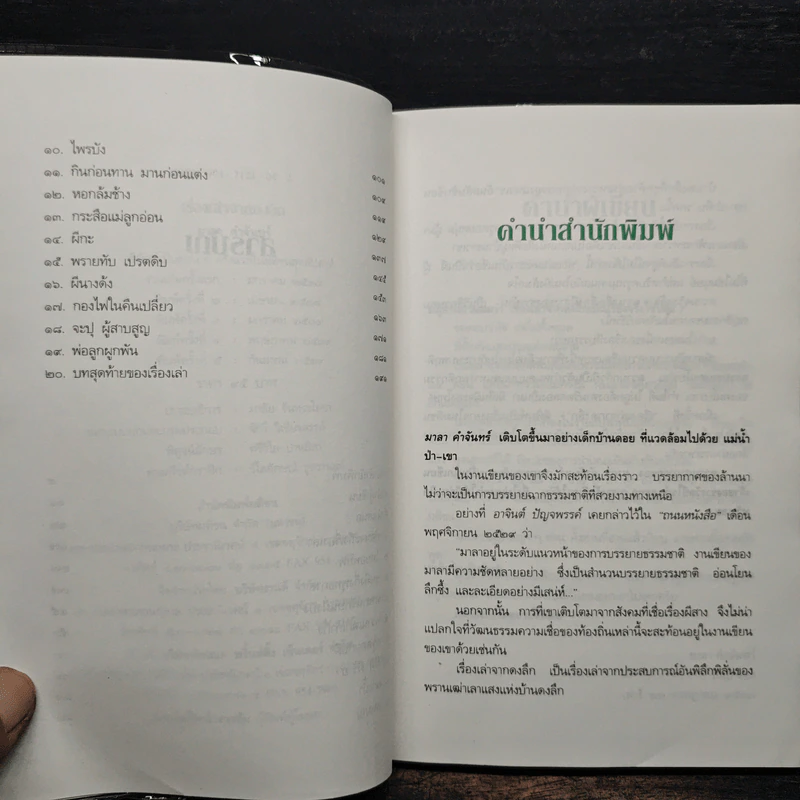 ๑๐. ไพรบัง
๑๑. กินก่อนทาน มานก่อนแต่ง ๑๐๑
๑๒. หอกล้มช้าง ๑๐๙
๑๓. กระสือแม่ลูกอ่อน ๑๑๙
๑๔. ผีกะ ๑๒๙
๑๕. พรายทับ เปรตดิบ ๑๓๗
๑๖. ผีนางด้ง ๑๔๕
๑๗. กองไฟในคืนเปลี่ยว ๑๕๓
๑๘. จะปุ ผู้สาบสูญ ๑๖๓
๑๙. พ่อลูกผูกพัน ๑๗๑
๒๐. บทสุดท้ายของเรื่องเล่า ๑๘๑
๑๙๑
คำนำสำนักพิมพ์
มาลา คำจันทร์ เติบโตขึ้นมาอย่างเด็กบ้านดอย ที่แวดล้อมไปด้วย แม่น้ำ
ป่า-เขา
ในงานเขียนของเขาจึงมักสะท้อนเรื่องราว บรรยากาศของล้านนา
ไม่ว่าจะเป็นการบรรยายฉากธรรมชาติที่สวยงามทางเหนือ
อย่างที่ อาจินต์ ปัญจพรรค์ เคยกล่าวไว้ใน "ถนนหนังสือ" เดือน
พฤศจิกายน ๒๕๒๙ ว่า
"มาลาอยู่ในระดับแนวหน้าของการบรรยายธรรมชาติ งานเขียนของ
มาลามีความชัดหลายอย่าง ซึ่งเป็นสำนวนบรรยายธรรมชาติ อ่อนโยน
ลึกซึ้ง และละเอียดอย่างมีเสน่ห์..."
นอกจากนั้น การที่เขาเติบโตมาจากสังคมที่เชื่อเรื่องผีสาง จึงไม่น่า
แปลกใจที่วัฒนธรรมความเชื่อของท้องถิ่นเหล่านี้จะสะท้อนอยู่ในงานเขียน
ของเขาด้วยเช่นกัน
เรื่องเล่าจากดงลึก เป็นเรื่องเล่าจากประสบการณ์อันพิลึกพิลั่นของ
พรานเฒ่าเลาแสงแห่งบ้านดงลึก